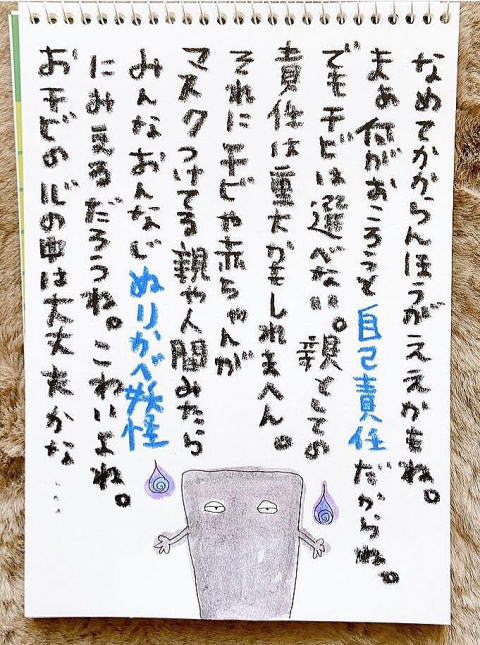 なめてかからんほうがええかもね。
まぁ何がおころうと自己責任だからね。
でもチビは選べない。親としての
責任は重大かもしれまへん。
それにチビや赤ちゃんが
マスクつけてる親や人間みたら
みんなおんなじぬりかべ妖怪
にみえるだろうね。こわいよね。
おチビの心の中は大丈夫かな…